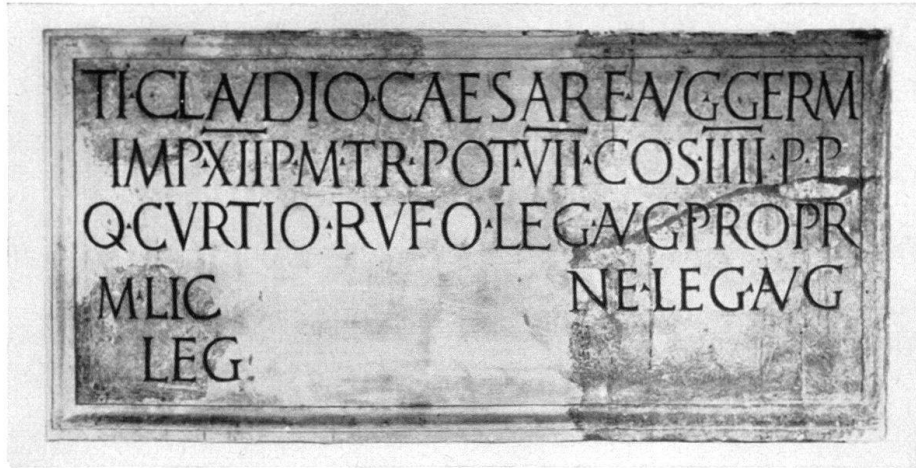 TI·CLAVDIO·CAESARE·AVG·GERM
IMP·XII·P·M·TR·POT·VII·COS·IIII·P·P
Q·CVRTIO·RVFO·LEG·AVG·PROPR
M·LIC NE·LEG·AVG
LEG